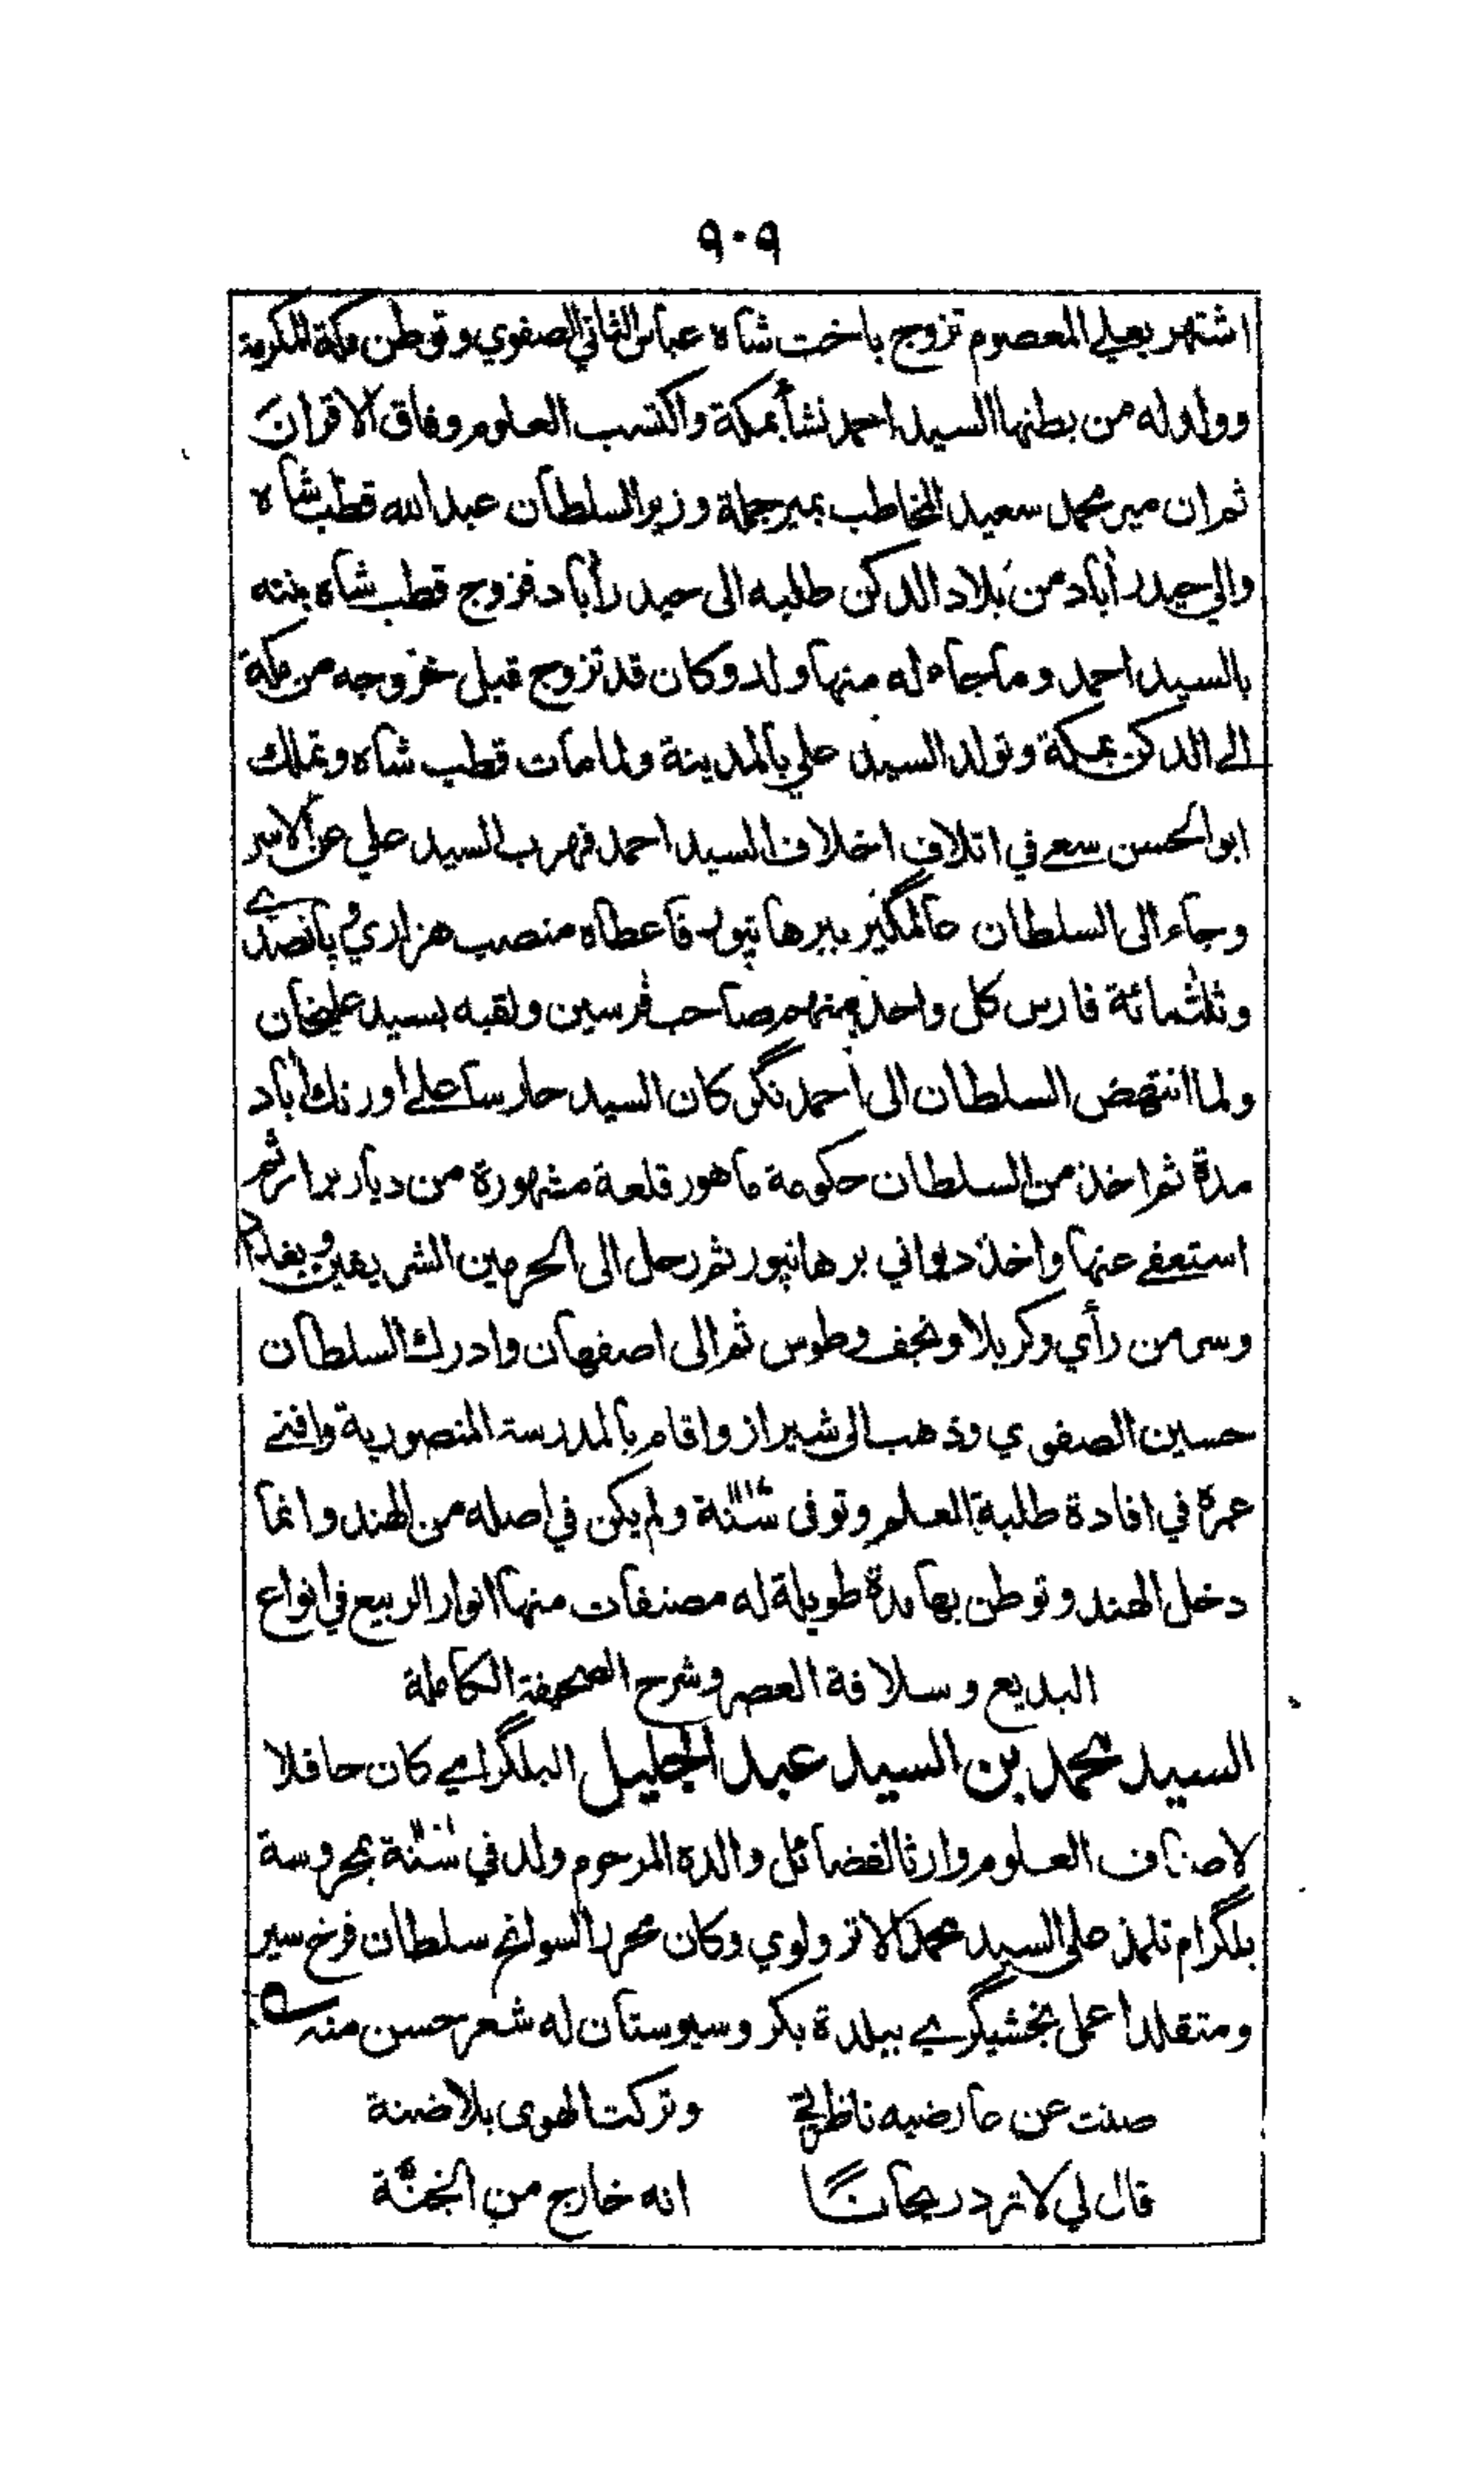 ٩٠٩
اشتهر بعلي المعصوم تزوج باخت شاه عباس الثاني الصفوي وتوطن مكة المكرمة
وولد له من بطنها السيد احمد نشأ بمكة واكتسب العلوم وفاق الاقران
ثم ان مير محمد سعيد المخاطب بمير جملة وزير السلطان عبد الله قطب شاه
والي حيدر أباد من بلاد الدكن طلبه الى حيدر أباد فزوج قطب شاه بنته
بالسيد احمد وما جاء له منها ولد وكان قد تزوج قبل خروجه من مكة
الى الدكن بمكة وتولد السيد علي بالمدينة ولما مات قطب شاه وتملك
ابو الحسن سعى في اتلاف اخلاف السيد احمد فهرب السيد علي عن الاسر
وجاء الى السلطان عالمگير ببرهانپور فاعطاه منصب هزاري وپانصدي
وثلثمائة فارس كل واحد منهم صاحب فرسين ولقبه بسيد عليخان
ولما انتهض السلطان الى احمد نگر كان السيد حارسا على اورنك أباد
مدة ثم اخذ من السلطان حكومة ماهور قلعة مشهورة من ديار برار ثم
استعفى عنها واخذ ديواني برهانپور ثم رحل الى الحرمين الشريفين وبغداد
وسر من رأي وكربلا ونجف وطوس ثم الى اصفهان وادرك السلطان
حسين الصفوي وذهب الى شيراز واقام بالمدرسة المنصورية وافنى
عمره في افادة طلبة العلم وتوفى سنة ولم يكن في اصله من الهند وانما
دخل الهند وتوطن بها مدة طويلة له مصنفات منها انوار الربيع في انواع
البديع وسلافة العصر وشرح الصحيفة الكاملة
السيد محمد بن السيد عبد الجليل البلگرامي كان حافلا
لاصناف العلوم وارثا لفضائل والده المرحوم ولد في سنة بمحروسة
بلگرام تلمذ على السيد محمد الاترولوي وكان محرر السوانح سلطان فرخ سير
ومتقلدا عمل بخشيگري ببلدة بكر وسيوستان له شعر حسن منه
صنت عن عارضيه ناظري وتركت الهوى بلا ضنة
قال لي لا ترد ريحانًا انه خارج من الجنّة